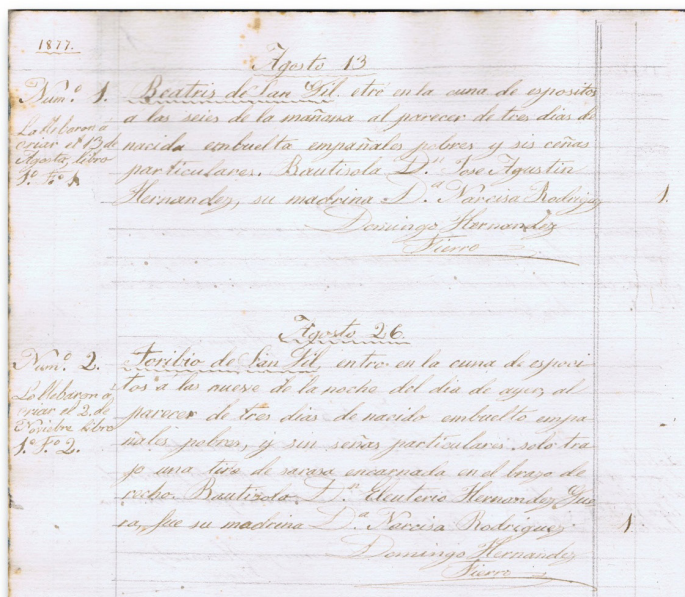 1877.
Agosto 13
Num.º 1.
Lo llebaron a
criar el 13 de
Agosto, libro
1.º F.º 1
Beatris de San Gil. etró en la cuna de espositos
a las seies de la mañana al parecer de tres dias de
nacida embuelta empañales pobres y sis ceñas
particulares. Bautisola D.n Jose Agustin
Hernandez, su madrina D.a Narcisa Rodriguez
1.
Domingo Hernandez
Fierro
Agosto 26
Num.º 2.
Lo llebaron a
criar el 2 de
Noviebre libro
1.º F.º 2.
Toribio de San Gil, entro en la cuna de esposi
tos a las nueve de la noche del dia de ayer, al
parecer de tres dias de nacido embuelto empa
ñales pobres, y sin señas particulares solo tra
jo una tira de sarasa encarnada en el brazo de
recho. Bautisola D.n Eleuterio Hernandez
ra, fue su madrina D.a Narcisa Rodriguez.
1.
Domingo Hernandez
Fierro